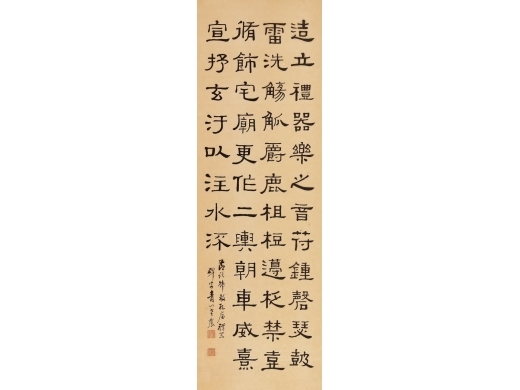 造立禮器樂之音苻鍾磬瑟鼓
雷洗觴觚爵鹿柤梪籩柉禁壺
脩飾宅廟更作二輿朝車威熹
宣抒玄汙以注水流